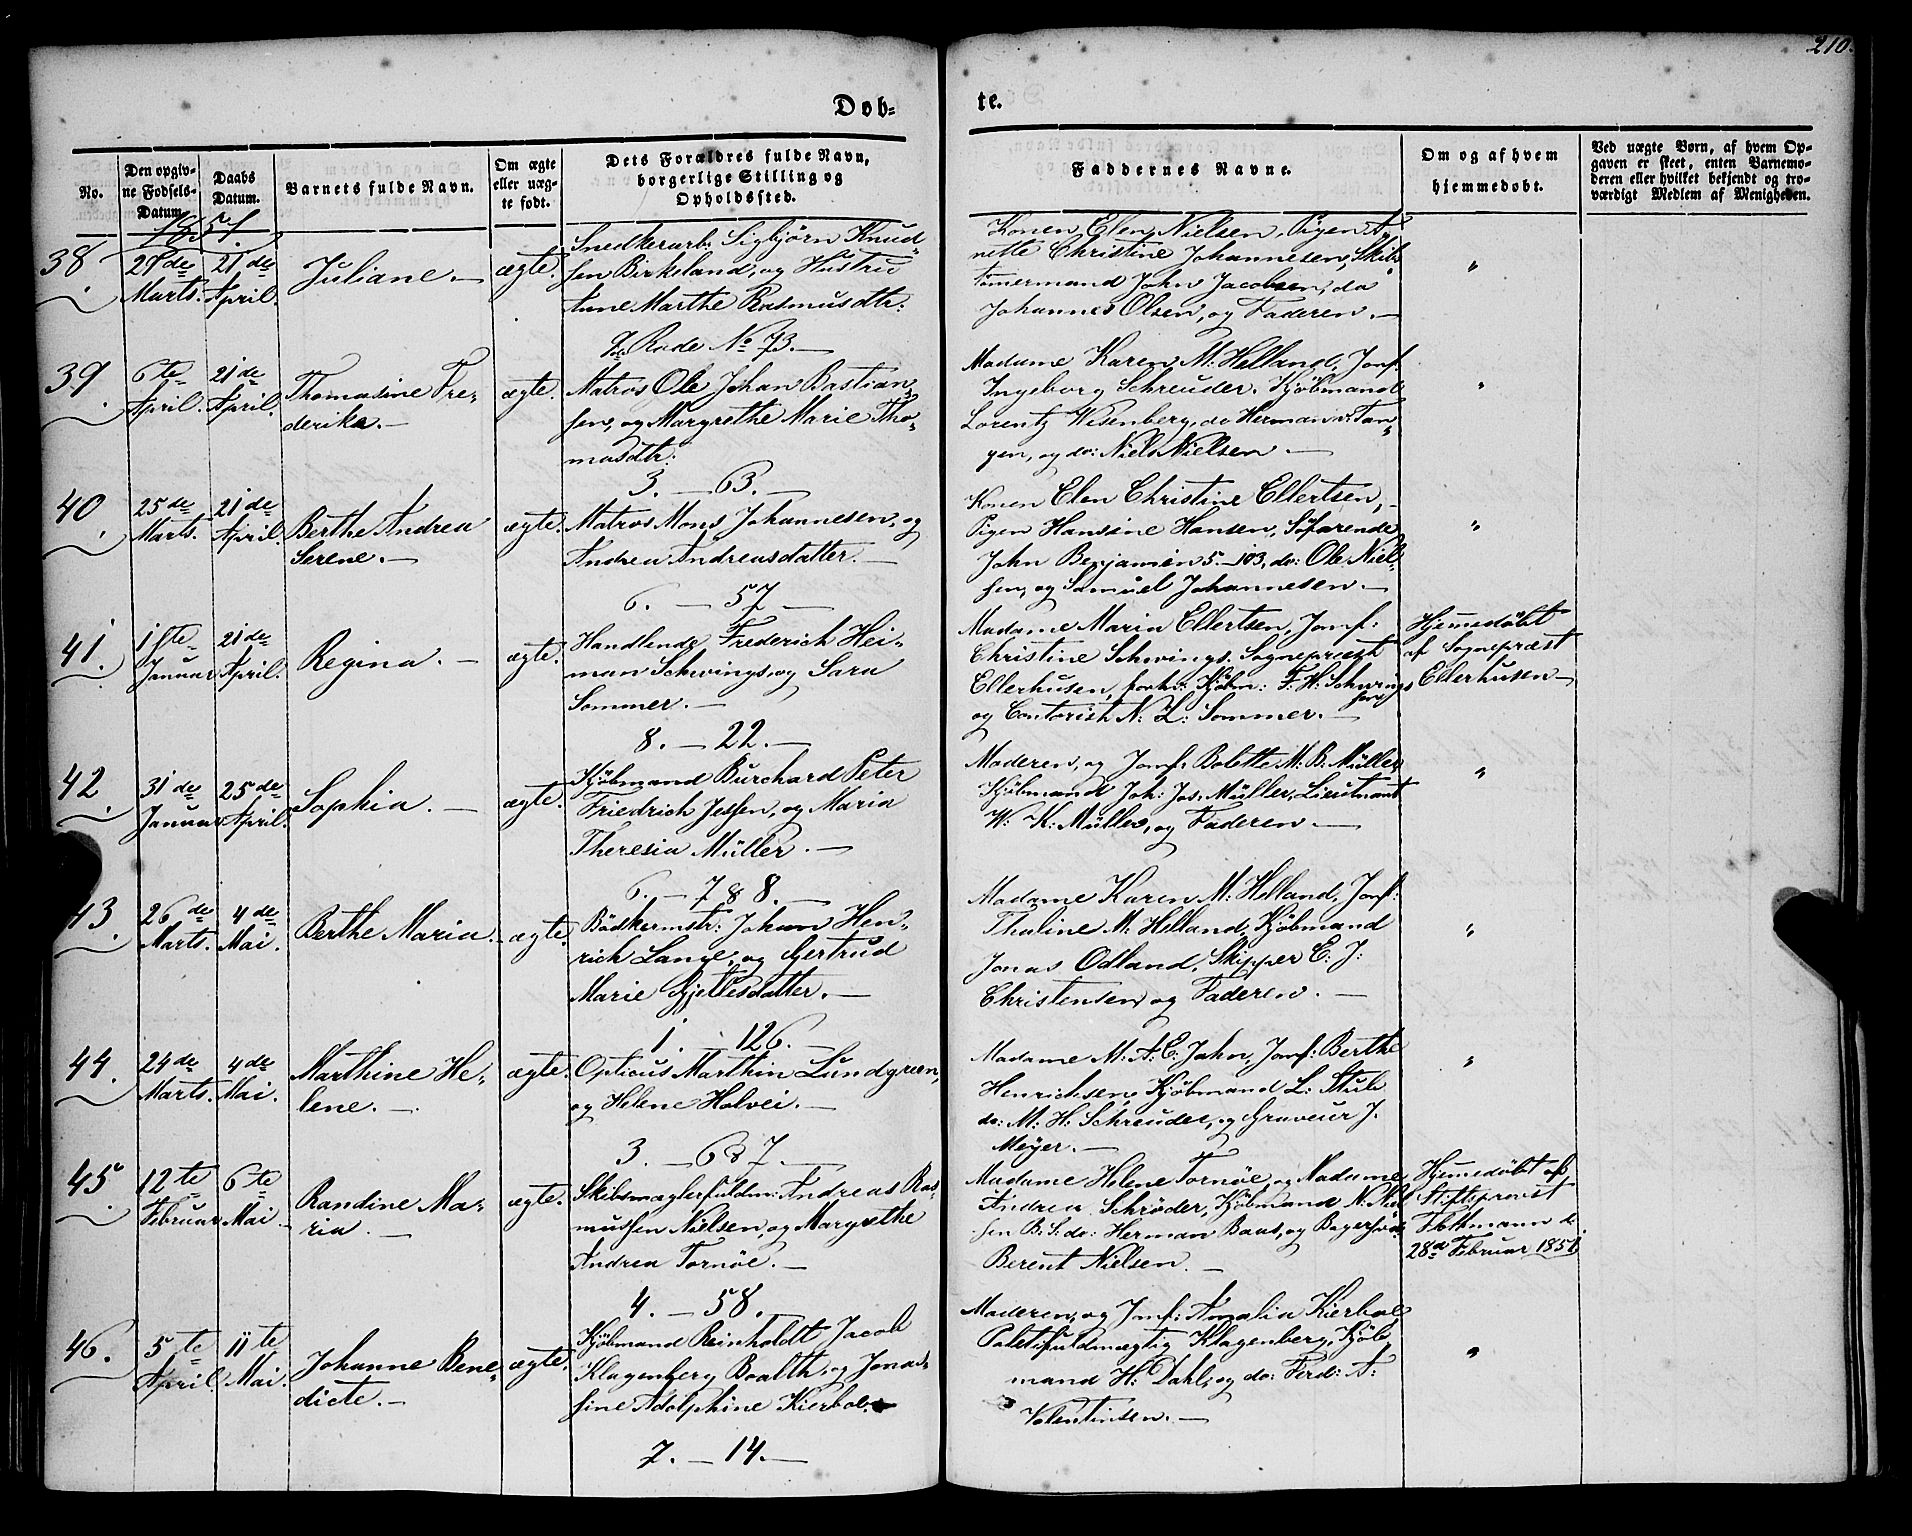 210.
Døb-
te.
No.
Den opgiv-
ne Fødsels-
Datum.
Daabs
Datum.
Barnets fulde Navn.
Om ægte
eller uæg-
te født.
Dets Forældres fulde Navn,
borgerlige Stilling og
Opholdssted.
Faddernes Navne.
Om og af hvem
hjemmedøbt.
Ved uægte Børn, af hvem Op-
gaven er skeet, enten Barnemo-
deren eller hvilket bekjendt og tro-
værdigt Medlem af Menigheden.
1851.
38.
21de
Marts.
21de
April
Juliane.
ægte.
Snedkerarb: Sigbjörn Knud-
sen Birkeland, og Hustrue
Anne Marthe Rasmusdtr:
Rode No 73.
Konen Elen Nielsen, Pigen A-
nette Christine Johannesen, Skibs
tømermand John Jacobsen, do
Johannes Olsen, og Faderen.
"
39.
6te
April.
21de
April.
Thomasine Fre-
derike.
ægte.
Matros Ole Johan Bastian-
sen, og Margrethe Marie Tho-
masdtr:
3. — 63.
Madame Karen M: Helland, Jomf:
Ingeborg Schreuder, Kjöbmand
Lorentz Wesenberg, do Herman v: Tan-
gen, og do: Niels Nielsen
"
40.
25de
Marts.
21de
April.
Berthe Andrea
Serene.
ægte.
Matros Mons Johannesen, og
Andrea Andreasdatter.
6. — 57
Konen Elen Christine Ellertsen,
Pigen Hansine Hansen, Söfarende
John Benjamin 5.-103, do: Ole Niel-
sen, og Samuel Johannesen
"
41.
1ste
Januar
21de
April.
Regina.
ægte.
Handlende Frederich Hei-
man Schwings, og Sara
Sommer.
8. — 22.
Madame Maria Ellertsen, Jomf:
Christine Schwings, Sognepræst
Ellerhusen, forhv: Kjöbm: F: H: Schwings
og Contorist N: L: Sommer.
Hjemedöbt
af Sognepræst
Ellerhusen
42.
31de
Januar
25de
April.
Sophia.
ægte.
Kjöbmand Burchard Peter
Friedrich Jessen, og Maria
Theresia Müller.
6. — 7 & 8.
Moderen, og Jomf: Bolette M: B: Müller,
Kjöbmand Joh: Jos: Müller, Lieutnant
W: K: Müller, og Faderen
"
43.
26de
Marts.
4de
Mai.
Berthe Maria.
ægte.
Bödkermstr: Johan Hen-
rich Lange, og Gertrud
Marie Gjellesdatter.
1. — 126.
Madame Karen M: Helland, Jomf:
Thaline M: Helland, Kjöbmand
Jonas Odland, Skipper E: J:
Christensen, og Faderen.
"
44.
24de
Marts.
4de
Mai.
Marthine He-
lene.
ægte.
Opticus Marthin Lundgreen,
og Helene Holvei.
3. — 6 & 7.
Madame M: A: C: Jahn, Jomf: Berthe
Henrichsen, Kjöbmand L: Stub
do: M: H: Schreuder, og Graveur J.
Meyer.
"
45.
12te
Februar
6te
Mai
Randine Ma-
ria.
ægte.
Skibsmæglerfuldm: Andreas Ras-
mussen Nielsen, og Margrethe
Andrea Tornöe.
4. — 58.
Madame Helene Tornöe, og Madame
Andrea Schröder, Kjöbmand N: Niel-
sen B: S: do: Herman Baas, og
Berent Nielsen.
Hjemedöbt af
Stiftsprovst
28de Februar 1851
46.
5te
April
11te
Mai.
Johanne Bene-
dicte.
ægte.
Kjöbmand Reinholdt Jacob
Klagenberg Boalth, og Jonas-
sine Adolphine Kierboe.
7. — 14.
Moderen, og Jomf: Amalia Kierboe,
Politifuldmægtig Klagenberg, Kjöb-
mand H: Dahl, og do: Ferd: A:
Valentinsen.
"